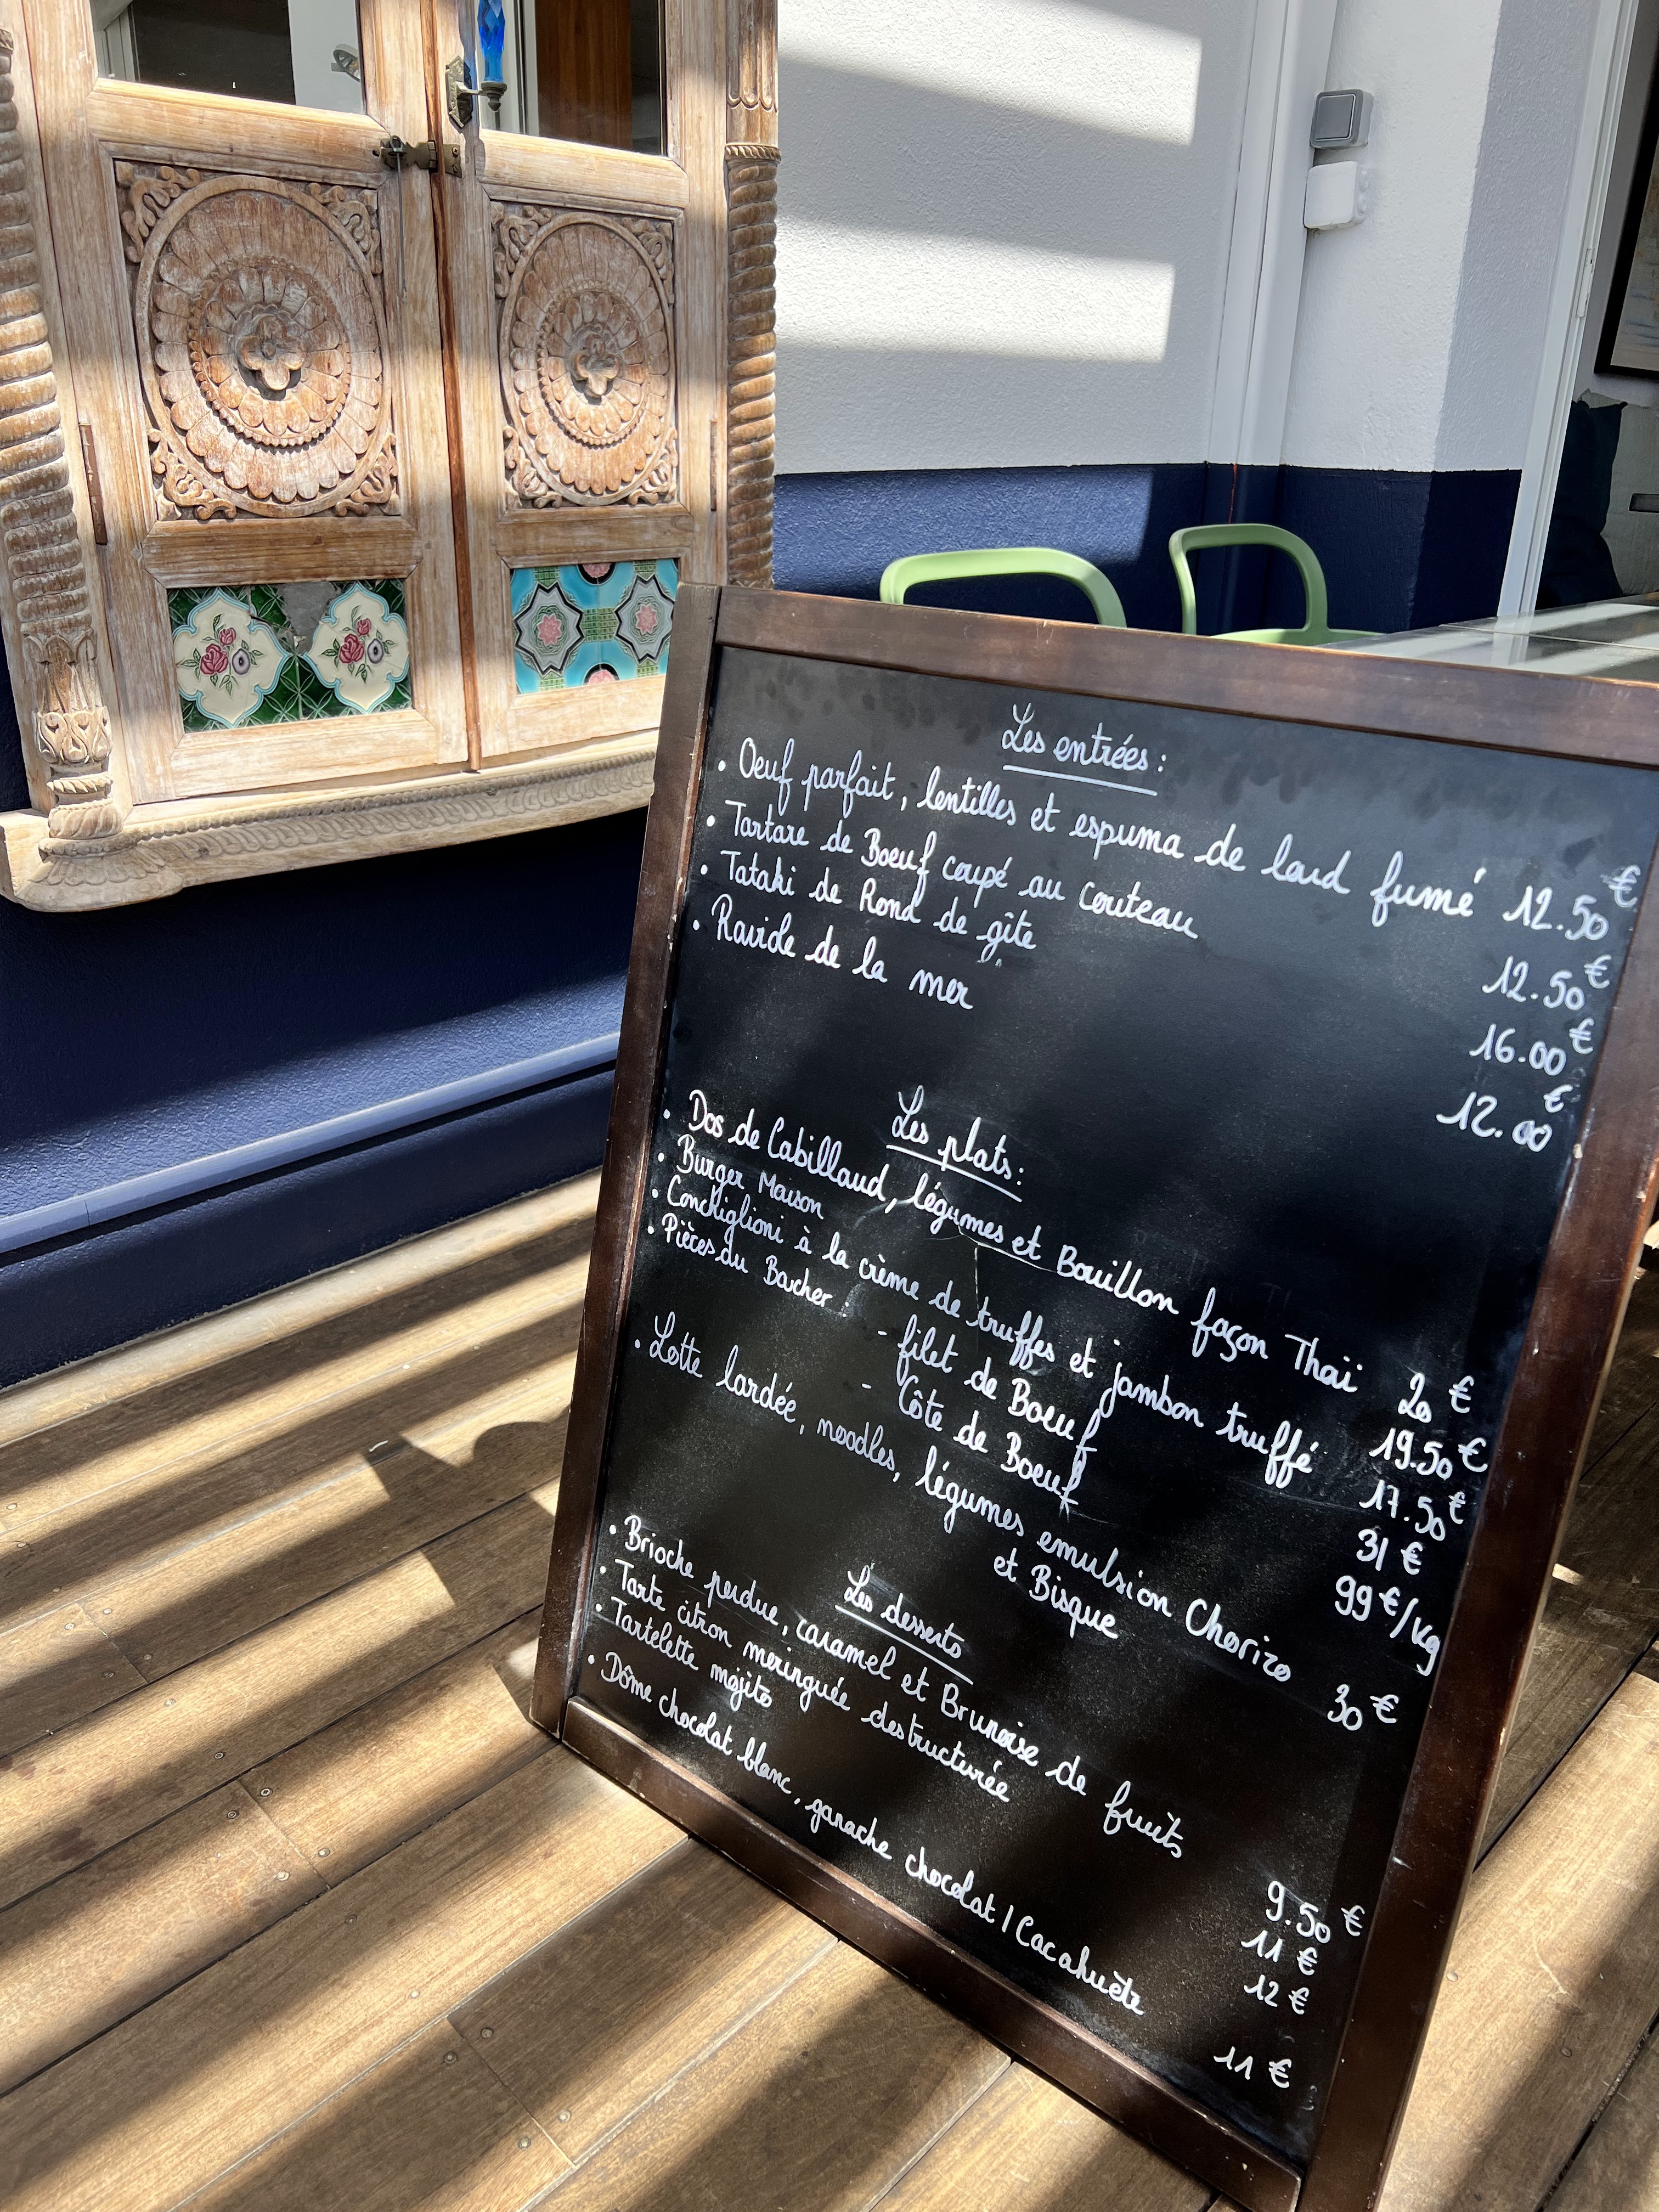 Les entrées :
• Oeuf parfait, lentilles et espuma de lard fumé 12.50€
• Tartare de Boeuf coupé au couteau 12.50€
• Tataki de Rond de gîte 16.00€
• Raviole de la mer 12.00€
Les plats :
• Dos de Cabillaud, légumes et Bouillon façon Thaï 20 €
• Burger Maison 19.50€
• Conchiglioni à la crème de truffes et jambon truffé 17.50€
• Pièces du Bocher - filet de Boeuf 31 €
- Côte de Boeuf 99€/kg
• Lotte lardée, noodles, légumes emulsion Chorizo
et Bisque 30 €
Les desserts
• Brioche perdue, caramel et Brunoise de fruits 9.50 €
• Tarte citron meringuée destructurée 11 €
• Tartelette mojito 12 €
• Dôme chocolat blanc, ganache chocolat / Cacahuète 11 €